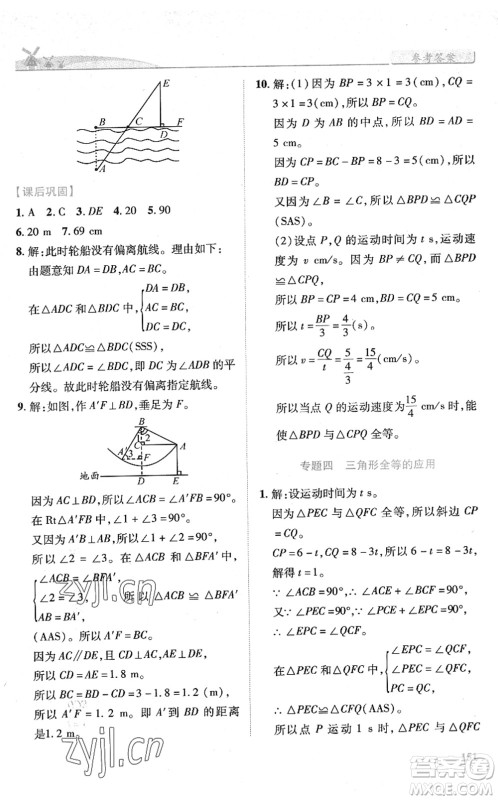 参考答案
E
B
C
F
D
A
【课后巩固】
1. A 2. C 3. DE 4. 20 5. 90
6. 20 m 7. 69 cm
8. 解：此时轮船没有偏离航线。理由如下：
由题意知 DA = DB，AC = BC。
在△ADC 和△BDC 中，{DA = DB, AC = BC, DC = DC,
所以△ADC≌△BDC(SSS)。
所以∠ADC = ∠BDC，即 DC 为∠ADB 的平
分线。故此时轮船没有偏离指定航线。
9. 解：如图，作 A′F⊥BD，垂足为 F。
B
1 2
C
A
A′ 3 F
地面
D E
因为 AC⊥BD，所以∠ACB = ∠A′FB = 90°。
在 Rt△A′FB 中，∠1 + ∠3 = 90°。
又因为 A′B⊥AB，所以∠1 + ∠2 = 90°。
所以∠2 = ∠3。在△ACB 和△BFA′中，
{∠ACB = ∠BFA′,
∠2 = ∠3, 所以△ACB≌△BFA′
AB = BA′,
(AAS)。所以 A′F = BC。
因为 AC∥DE，且 CD⊥AC，AE⊥DE，
所以 CD = AE = 1.8 m。
所以 BC = BD - CD = 3 - 1.8 = 1.2(m)。
所以 A′F = 1.2 m，即 A′到 BD 的距离
是1.2 m。
10. 解：(1)因为 BP = 3 × 1 = 3(cm)，CQ =
3 × 1 = 3(cm)，所以 BP = CQ。
因为 D 为 AB 的中点，所以 BD = AD =
5 cm。
因为 CP = BC - BP = 8 - 3 = 5(cm)，
所以 BD = CP。
又因为∠B = ∠C，所以△BPD≌△CQP
(SAS)。
(2)设点 P，Q 的运动时间为 t s，点 Q 的运动速
度为 v cm/s。因为 BP ≠ CQ，∠B = ∠C，
△BPD≌△CPQ，
所以 BP = CP = 4 cm，BD = CQ = 5 cm，
所以 t = BP/3 = 4/3(s)。
所以 v = CQ/t = 5/(4/3) = 15/4(cm/s)。
所以当点 Q 的运动速度为 15/4 cm/s 时，能
使△BPD≌△CPQ。
专题四 三角形全等的应用
1. 解：设运动时间为 t s。
因为△PEC 与△QFC 全等，所以斜边 CP =
CQ。
CP = 6 - t，CQ = 8 - 3t，即 6 - t = 8 - 3t，
解得 t = 1。
因为∠ACB = 90°，所以∠1 + ∠2 = 90°。
又因为∠EPC + ∠1 = 90°，
所以∠EPC = ∠2。
在△PEC 与△QFC 中，{∠EPC = ∠QCF, ∠PEC = ∠CFQ, PC = CQ,
所以△PEC≌△CFQ(AAS)。
所以点 P 运动 1 s 时，△PEC 与△QFC
zyjl.cn
zyjl.cn